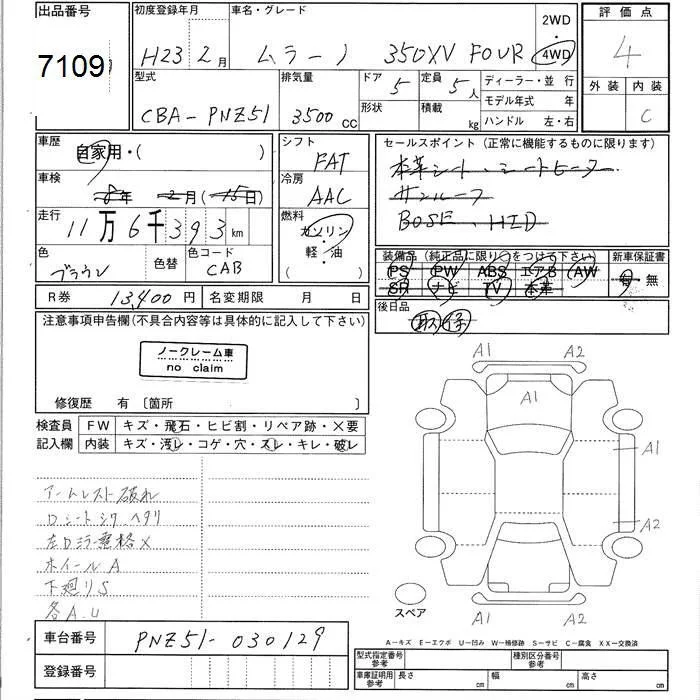 出品番号
7109
初度登録年月
H23 2月
車名・グレード
ムラーノ 350XV FOUR
2WD
4WD
評価点
4
外装 内装
C
型式
CBA-PNZ51
排気量
3500 CC
ドア
5
形状
定員
5人
積載
kg
ディーラー・並 行
モデル年式 年
ハンドル 左・右
車歴
自家用・( )
車検
年 2月(15日)
走行
11万6千393km
色
ブラウン
色替
色コード
CAB
シフト
FAT
冷房
AAC
燃料
ガソリン
軽・油
( )
セールスポイント(正常に機能するものに限ります)
本革シート、シートヒーター
サンルーフ
BOSE、HID
装備品(純正品に限り○をつけて下さい)
PS PW ABS エアB AW
SR ナビ TV 本革
新車保証書
有 無
後日品
取 保
R券 13,400円
名変期限 月 日
注意事項申告欄(不具合内容等は具体的に記入して下さい)
ノークレーム車
no claim
修復歴 有〔箇所 〕
検査員
記入欄
FW キズ・飛石・ヒビ割・リペア跡・×要
内装 キズ・汚レ・コゲ・穴・スレ・キレ・破レ
アームレスト破れ
Dシートシワ ヘタリ
左Dミラー悪格X
ホイールA
下廻りS
各A.U
A1 A2
A1
A1
A2
A1 A2
スペア
A-キズ E-エクボ U-凹み W-補修跡 S-サビ C-腐食 XX-交換済
車台番号
PNZ51-030129
登録番号
型式指定番号
参考
種別区分番号
参考
車庫証明用
参考
長さ cm
幅 cm
高さ cm